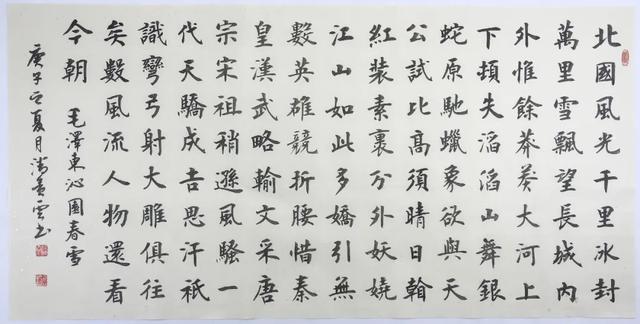 北國風光千里冰封
萬里雪飄望長城內
外惟餘莽莽大河上
下頓失滔滔山舞銀
蛇原馳蠟象欲與天
公試比高須晴日翰
紅装素裹分外妖嬈
江山如此多嬌引無
數英雄競折腰惜秦
皇漢武略輸文采唐
宗宋祖稍遜風騷一
代天驕成吉思汗祇
識彎弓射大雕俱往
矣數風流人物還看
今朝 毛澤東沁園春雪
庚子夏月